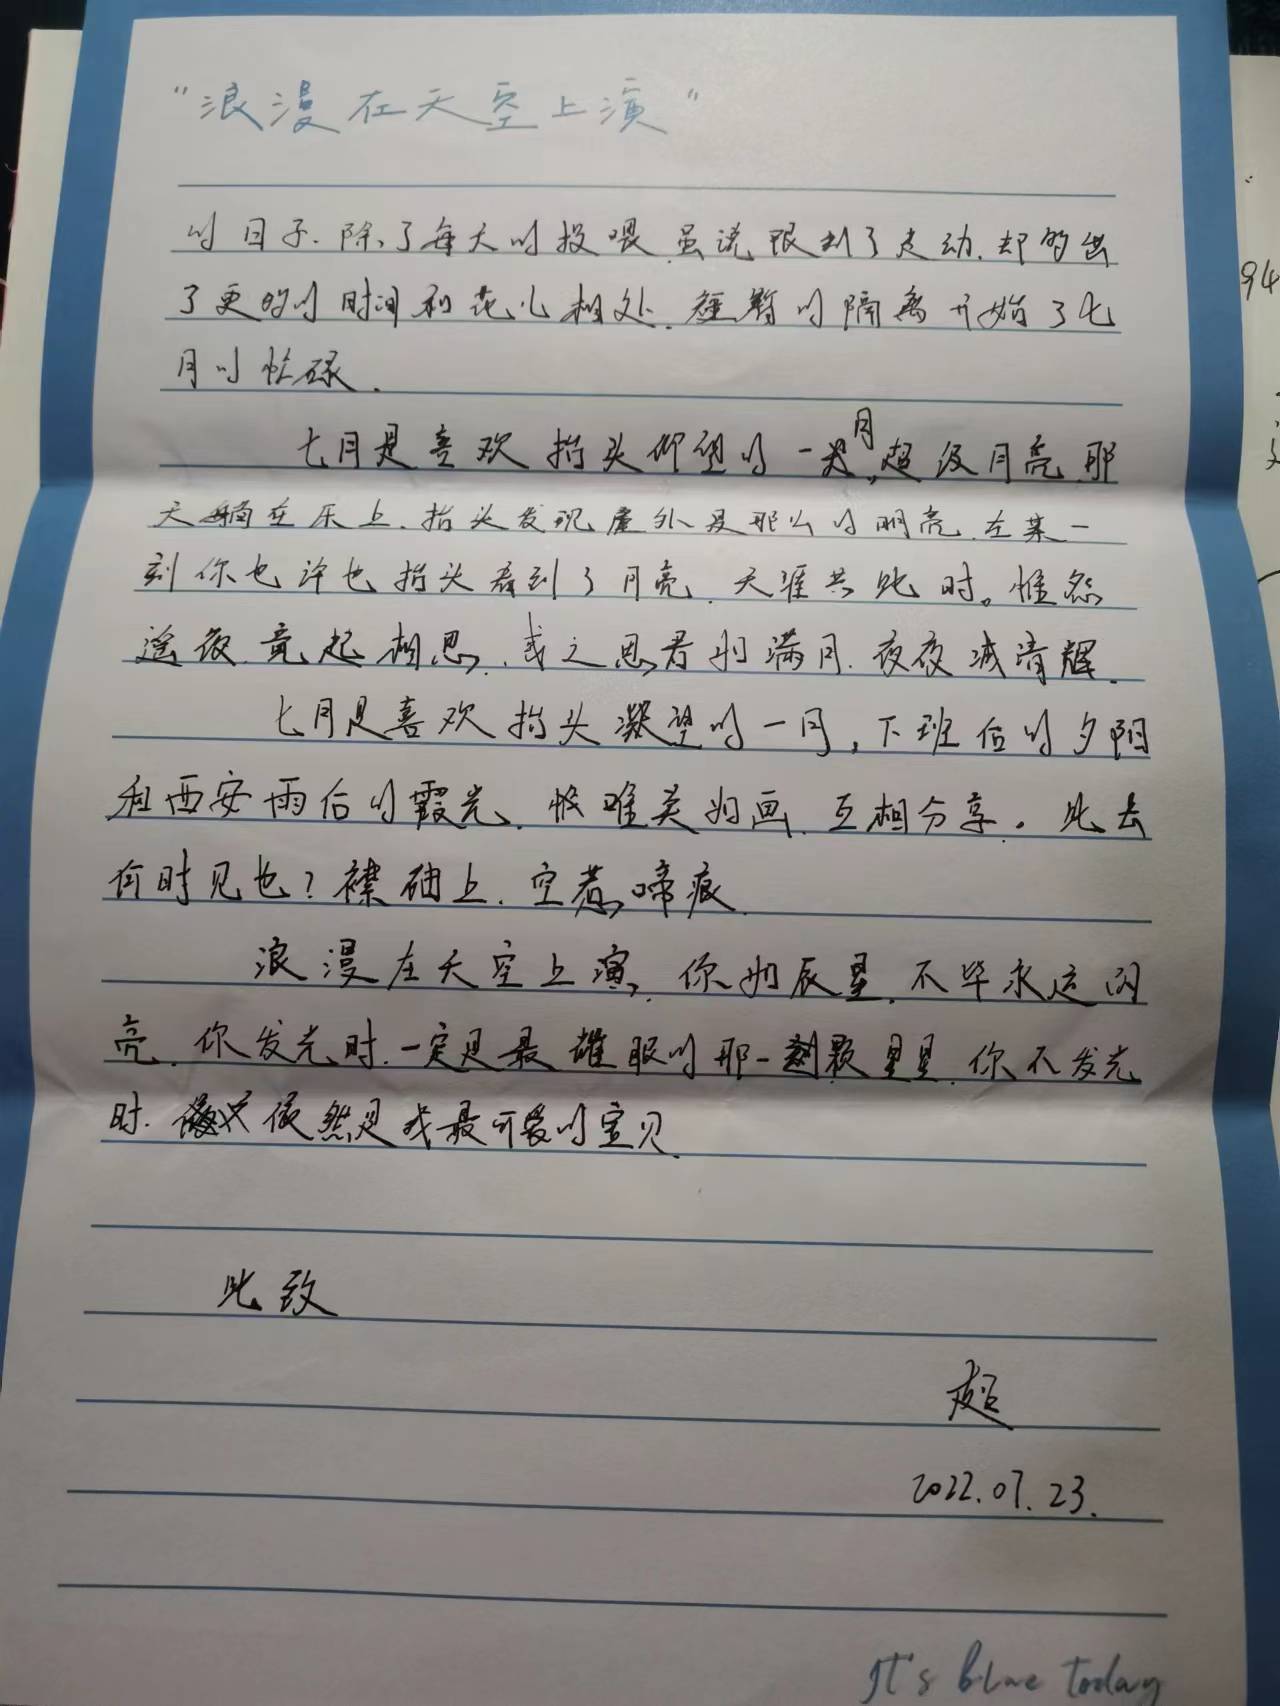 “浪漫在天空上演”
的日子.除了每天的投喂.虽说限制了走动.却多出
了更多的时间和花儿相处.短暂的隔离开始了七
月的忙碌.
七月是喜欢抬头仰望的一月,超级月亮那
天躺在床上.抬头发现屋外是那么的明亮.在某一
刻你也许也抬头看到了月亮.天涯共此时。惟怨
遥夜.竟起相思.或之思君如满月.夜夜减清辉.
七月是喜欢抬头凝望的一月,下班后的夕阳
和西安雨后的霞光.惟美如画.互相分享.此去
何时见也?襟袖上.空惹啼痕.
浪漫在天空上演.你如辰星.不毕永远闪
亮.你发光时.一定是最耀眼的那一颗星星.你不发光
时.依然是我最可爱的宝贝.
此致
超
2022.07.23.
It's blue today
94